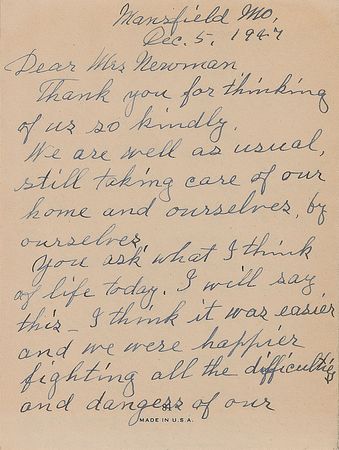 Mansfield Mo,
Dec. 5, 1947
Dear Mrs Newman
Thank you for thinking
of us so kindly.
We are well as usual,
still taking care of our
home and ourselves, by
ourselves,
You ask what I think
of life today. I will say
this – I think it was easier
and we were happier
fighting all the difficulties
and dangers of our
MADE IN U.S.A.